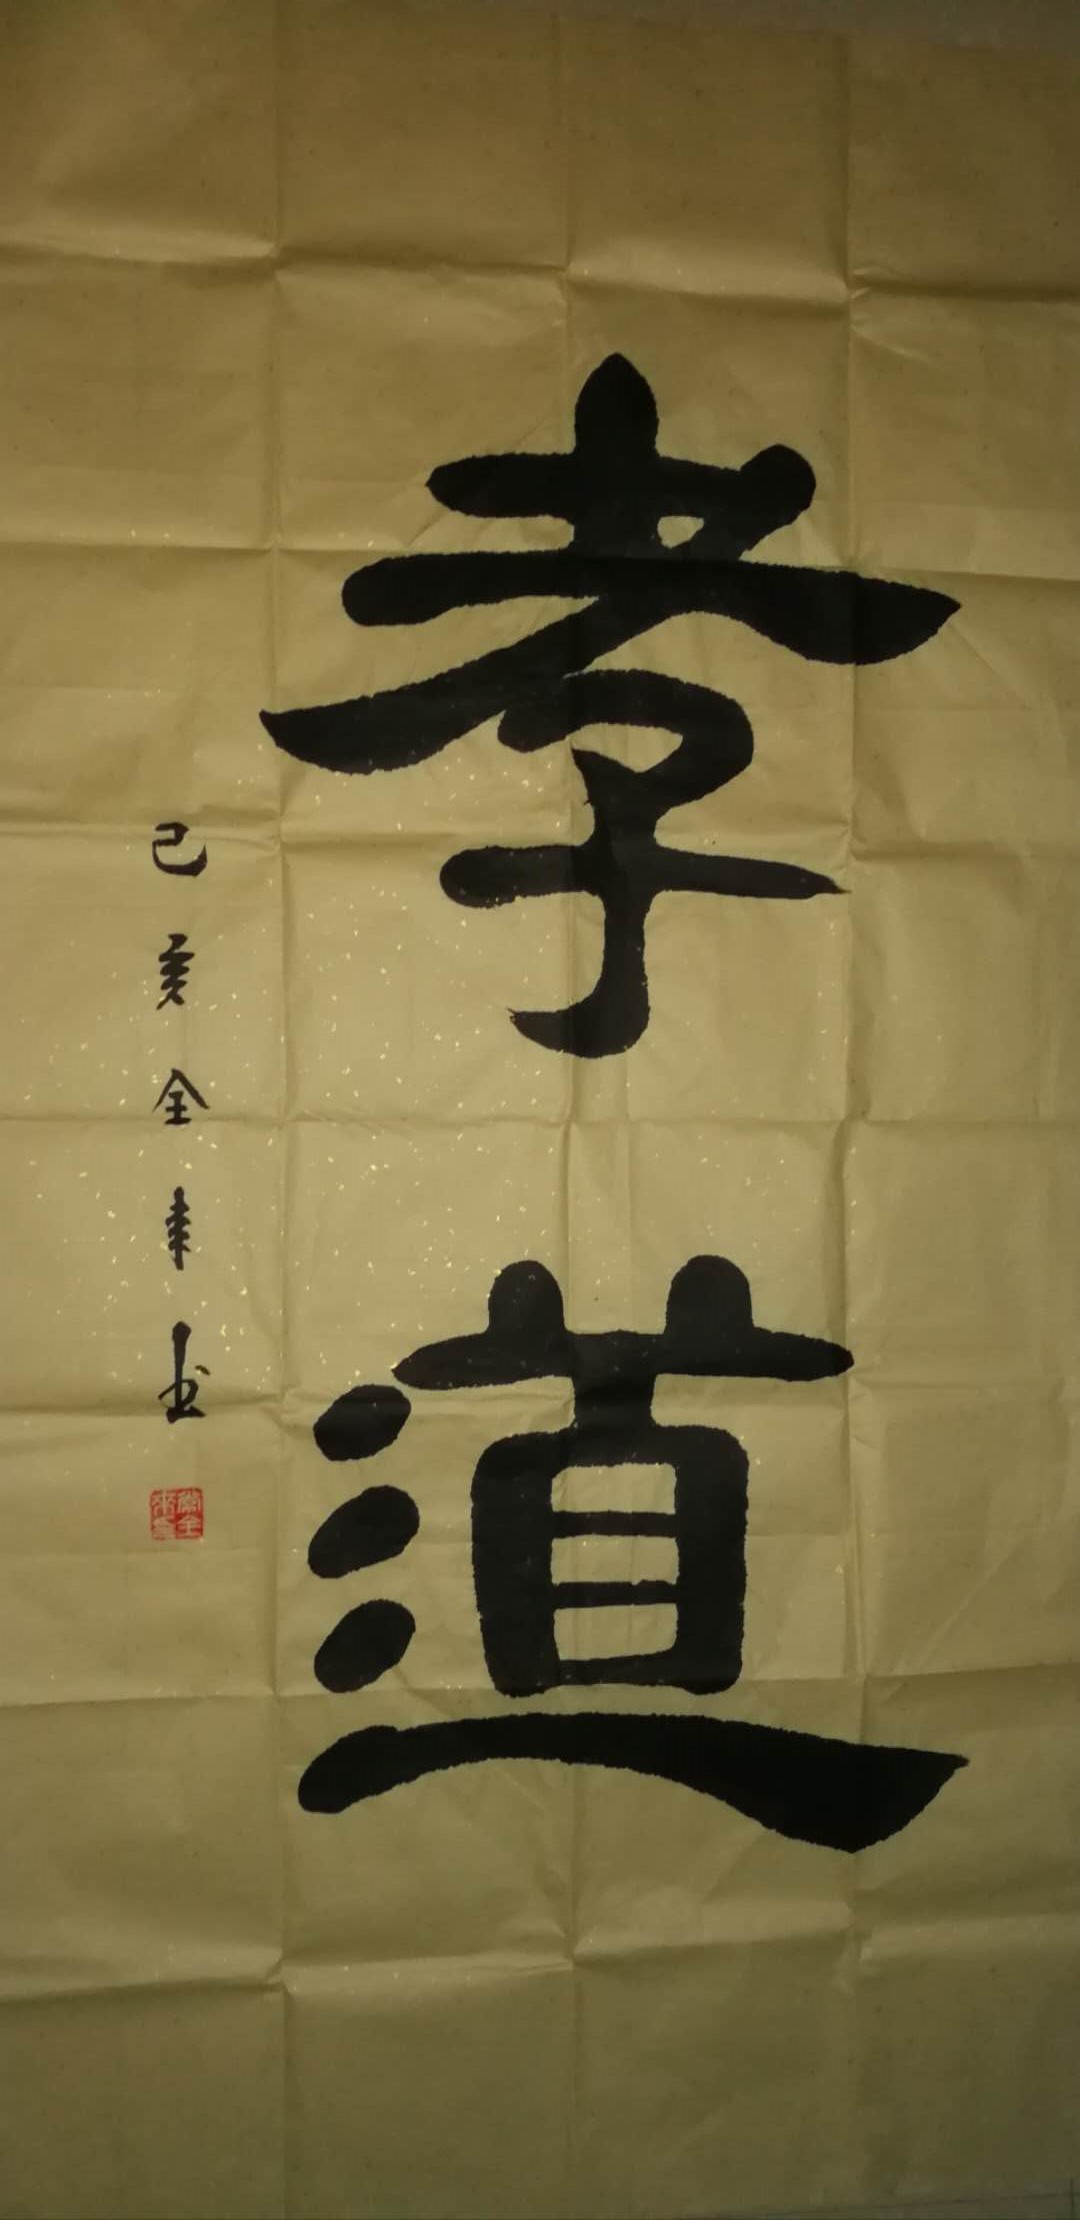 孝道
己亥全来书